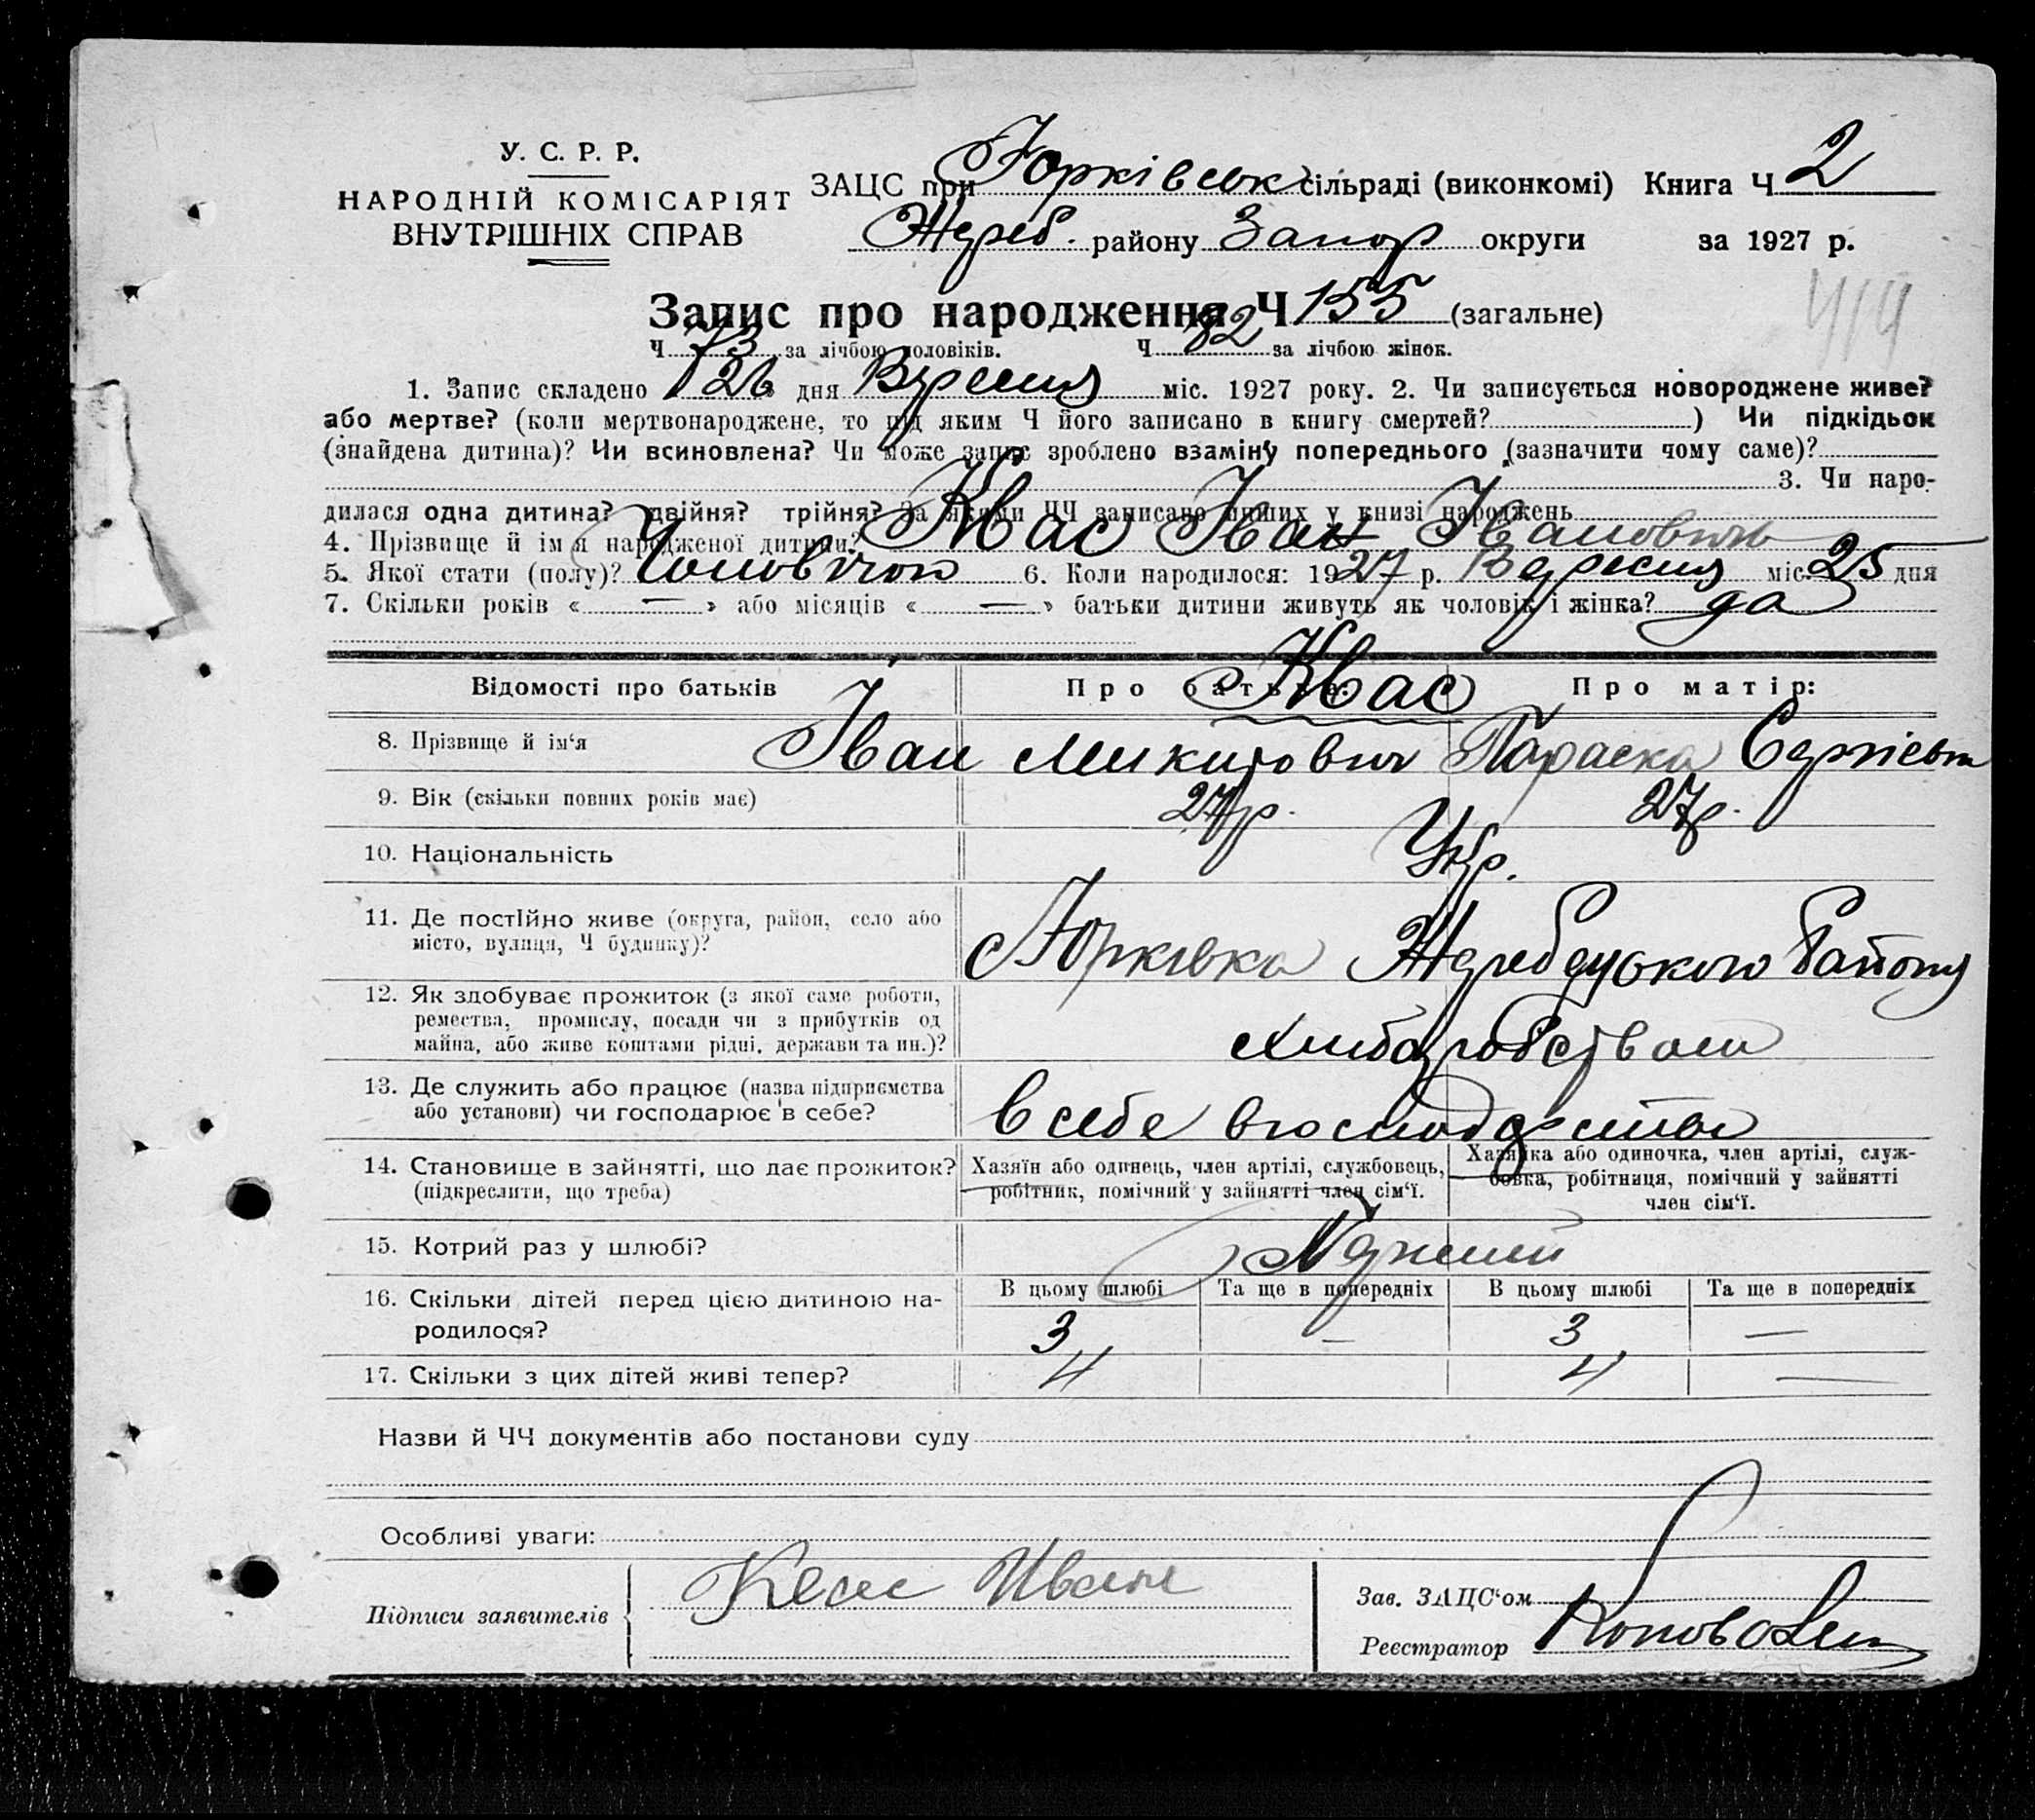 У. С. Р. Р.
НАРОДНІЙ КОМІСАРІЯТ
ВНУТРІШНІХ СПРАВ
ЗАЦС при Юрківськ сільраді (виконкомі) Книга Ч 2
Жереб. району Запор округи за 1927 р.
414
Запис про народження Ч 155 (загальне)
Ч 73 за лічбою чоловіків. Ч 82 за лічбою жінок.
1. Запис складено 26 дня Вересня міс. 1927 року. 2. Чи записується новороджене живе?
або мертве? (коли мертвонароджене, то під яким Ч його записано в книгу смертей? ) Чи підкідьок
(знайдена дитина)? Чи всиновлена? Чи може запис зроблено взаміну попереднього (зазначити чому саме)?
3. Чи наро-
дилася одна дитина? двійня? трійня? За якими ЧЧ записано інших у книзі народжень
4. Прізвище й ім'я народженої дитини? Квас Іван Іванович
5. Якої стати (полу)? Чоловічої 6. Коли народилося: 1927 р. Вересня міс. 25 дня
7. Скільки років « — » або місяців « — » батьки дитини живуть як чоловік і жінка? да
Відомості про батьків Про батька: Про матір:
Квас
8. Прізвище й ім‘я Іван Микитович Параска Сергієвна
9. Вік (скільки повних років має) 27 р. 27 р.
10. Національність Укр.
11. Де постійно живе (округа, район, село або
місто, вулиця, Ч будинку)?
с Юрківка Жеребецького Району
12. Як здобуває прожиток (з якої саме роботи,
ремества, промислу, посади чи з прибутків од
майна, або живе коштами рідні, держави та ин.)?
хліборобством
13. Де служить або працює (назва підприємства
або установи) чи господарює в себе?
в себе
14. Становище в зайнятті, що дає прожиток?
(підкреслити, що треба)
Хазяїн або одинець, член артілі, службовець,
робітник, помічний у зайнятті член сім‘ї.
Хазяйка або одиночка, член артілі, служ-
бовка, робітниця, помічний у зайнятті
член сім‘ї.
15. Котрий раз у шлюбі?
16. Скільки дітей перед цією дитиною на-
родилося?
В цьому шлюбі Та ще в попередніх В цьому шлюбі Та ще в попередніх
3 — 3 —
17. Скільки з цих дітей живі тепер? 4 4 —
Назви й ЧЧ документів або постанови суду
Особливі уваги:
Підписи заявителів Квас Иван
Зав. ЗАЦС‘ом
Реєстратор